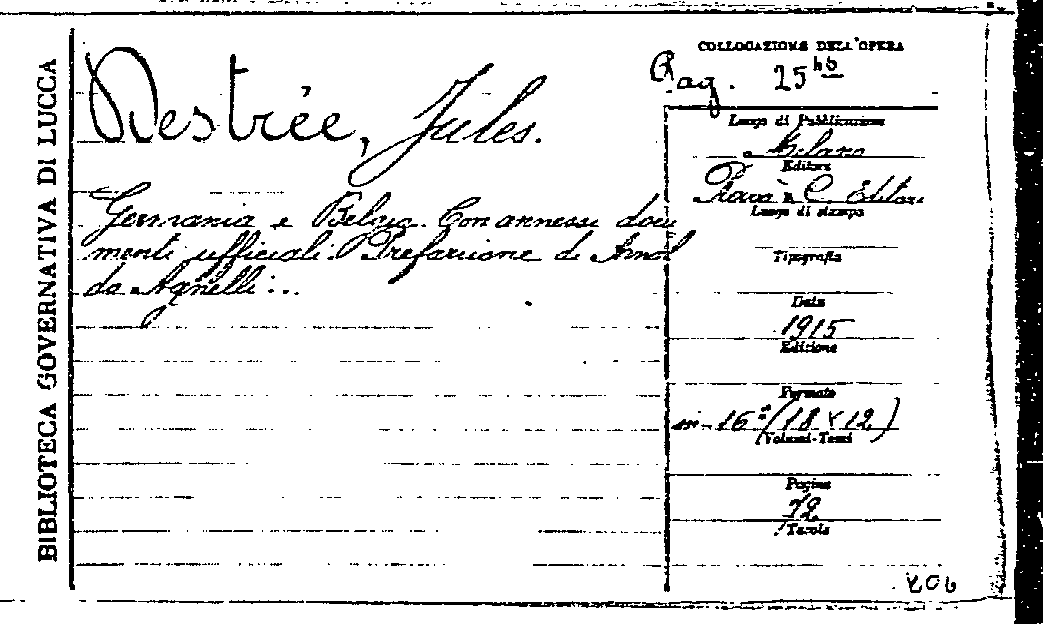 BIBLIOTECA GOVERNATIVA DI LUCCA
Destrée, Jules.
Germania e Belgio. Con annessi docu
menti ufficiali. Prefazione di Arnol
do Agnelli...
COLLOCAZIONE DELL'OPERA
Rag. 25
Luogo di Pubblicazione
Milano
Editore
Ravà & C. Editori
Luogo di stampa
Tipografia
Data
1915
Edizione
Formato
in-16° (18 x 12)
(Volumi-Tomi
Pagine
72
Tavole